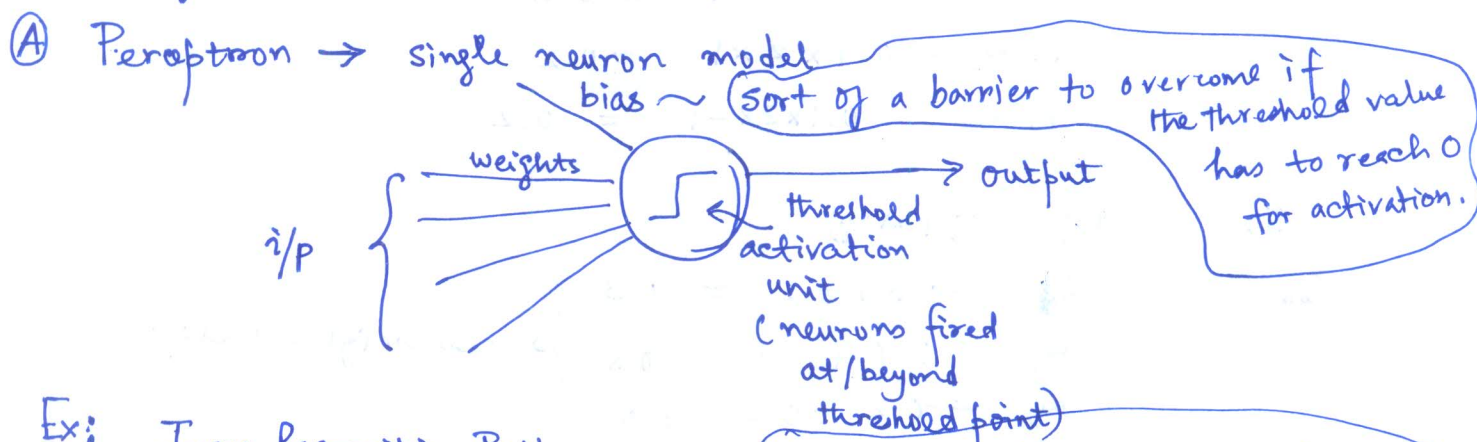 Ⓐ Peroptron → single neuron model
bias ~ sort of a barrier to overcome if
the threshold value
has to reach 0
for activation.
weights
i/p
→ output
threshold
activation
unit
(neurons fired
at/beyond
threshold point)
Ex: